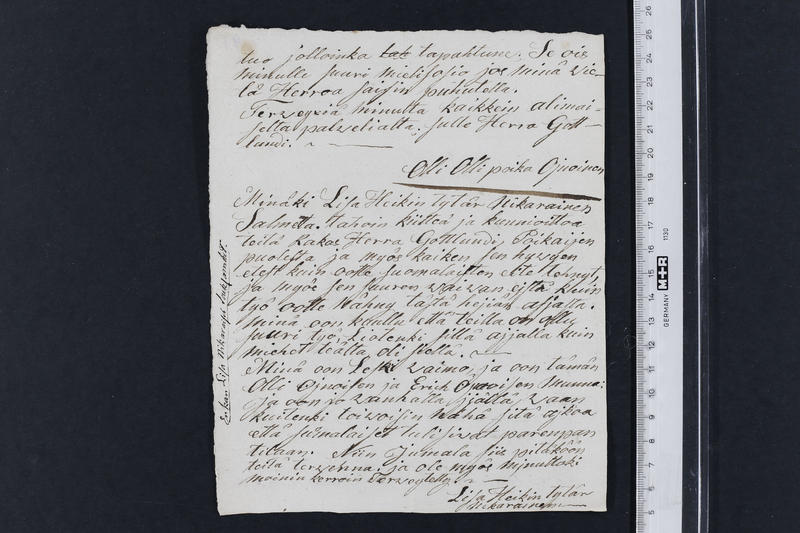 tuo jolloinka tak tapahtune. Se ois
minulle suuri mielisosio jos minä vie-
lä Herraa saisin puhutella.
Terweyxiä minulta kaikkein alimai-
selta palwelialta, sulle Herra Gott-
lundi.
Olli Olli poika Ojnoinen
Minäki Lisa Heikin tytär Nikarainen
Salmelta. tahon kiitteä ja kunnioittoa
teitä Rakas Herra Gottlundi, Poikaijen
puolesta ja myös kaiken sen hywyen
eless kuin ootte suomalaisten ette tehnyt,
ja myös sen suuren waiwan että kuin
työ ootte nähny tästä hejän asjalta.
minä oon kuullu että teillä on ollu
suuri työ Liotenki sillä ajjalla kuin
miehet teältä oli siellä.
Minä oon Leski waimo, ja oon tämän
Olli Ojnoisen ja Erich Ojnoisen Mumma:
ja oon jo wanhalta ijältä, waan
kuitenki toiwoisin nähä sitä ajkoa
että suomalaiset tulisiwat parenpan
tilaan. Niin Jumala siis pitäköön
teitä terwennä. ja ole myös minultaki
monin kerroin Terweytetty.
Lisa Heikin tytär
Nikarainen
Enkan Lisa Nikarays